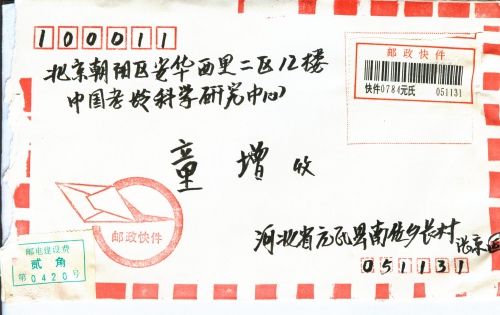 100011
北京朝阳区安华西里二区12楼
中国老龄科学研究中心
邮政快件
快件0784元氏 051131
童增 收
邮政快件
邮电建设费
贰角
第0420号
河北省元氏县南佐乡长村
051131